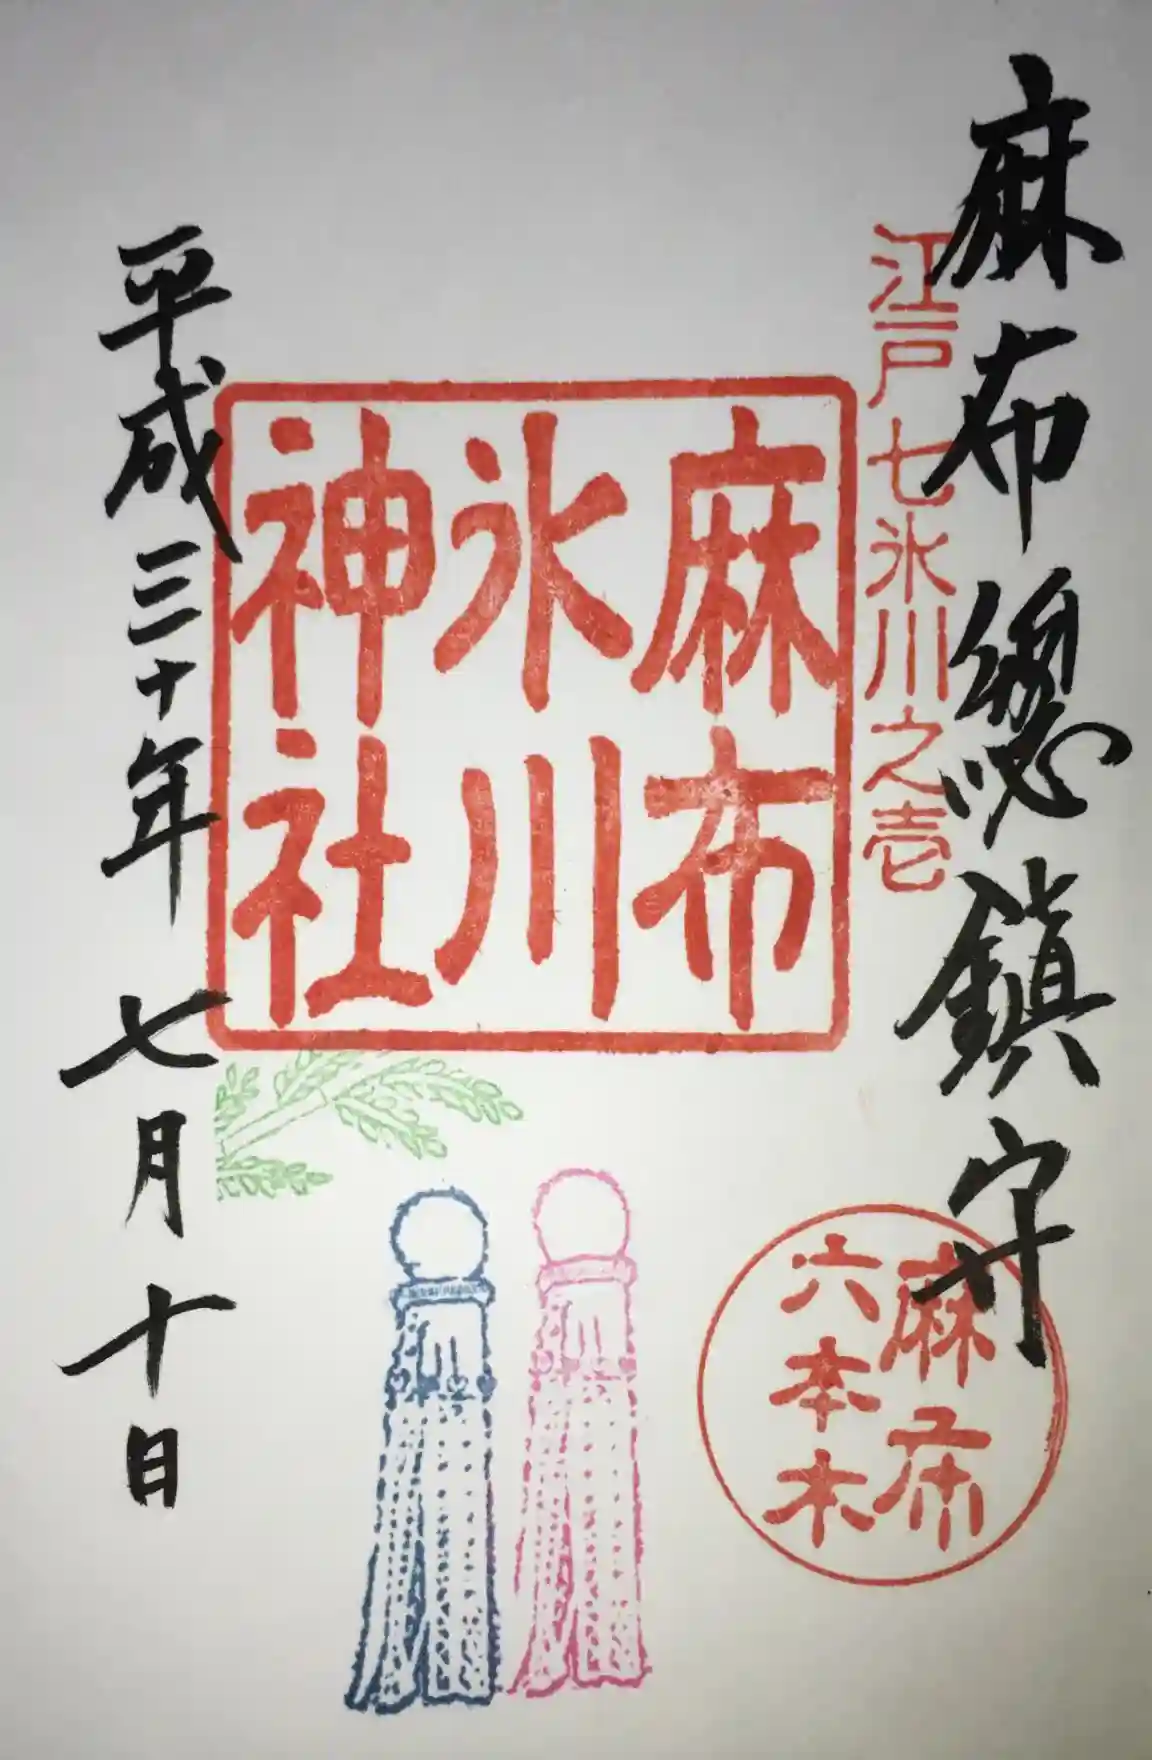 麻布總鎮守
江戸七氷川之壱
麻布
氷川
神社
平成三十年 七月十日
麻布
六本木